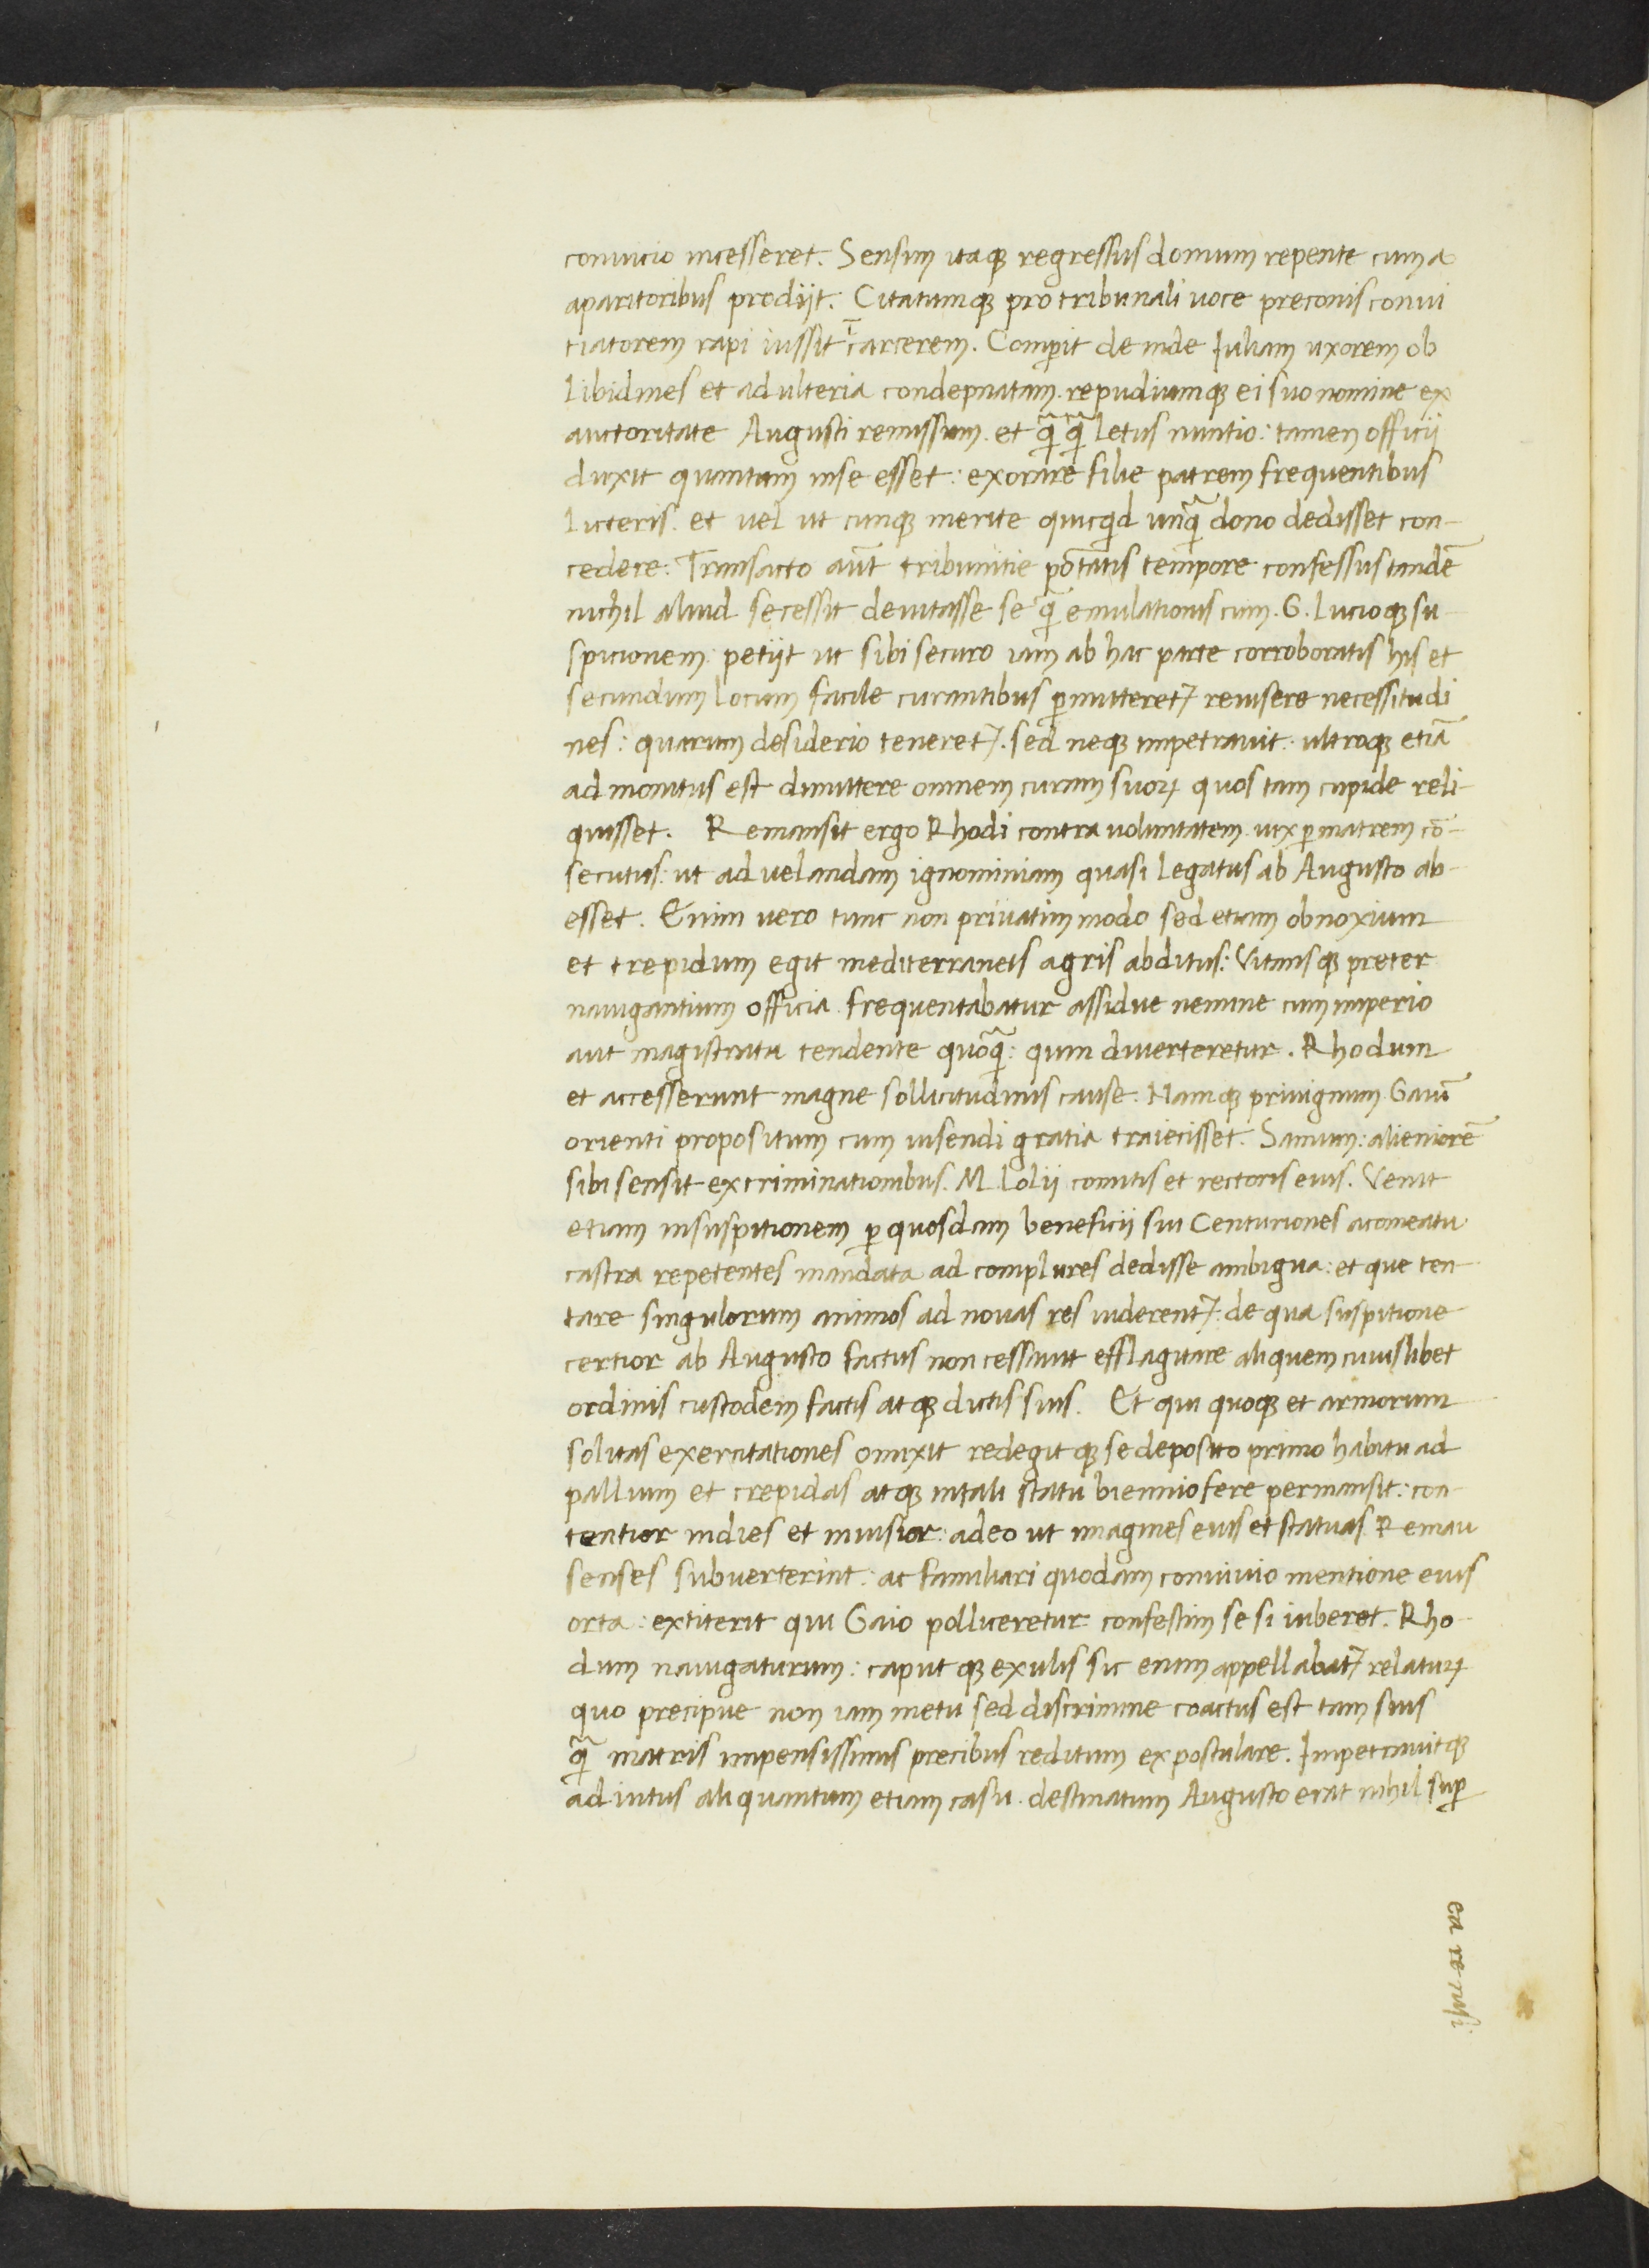 conuicio incesseret. Sensim itaqꝫ regressus domum repente cum a
aparitoribus prodijt: Citatumqꝫ pro tribunali uoce preconis conui
tiatorem rapi iussit ī carcerem. Comꝑit deinde Iuliam uxorem ob
libidines et adulteria condepnatam. repudiumqꝫ ei suo nomine ex
auctoritate Augusti remissum. et qᷓqᷓ letus nuntio: tamen officij
duxit quantum inse esset: exorare filie patrem frequentibus
licteris. et uel ut cunqꝫ merite quicqͥd unqᷓ dono dedisset con-
cedere: Transacto aūt tribunitie potātis tempore confessus tandē
nichil aliud secessit deuitasse se qᷓ emulationis cum. G. Lucioqꝫ su-
spicionem: petijt ut sibi securo iam ab hac parte corroboratis his et
secundum locum facile curantibus ꝑmitteretꝫ reuisere necessitudi
nes: quarum desiderio teneretꝫ. sed neqꝫ impetrauit: ultroqꝫ etiā
admonitus est dimittere omnem curam suoꝝ quos tam cupide reli-
quisset. Remansit ergo Rhodi contra uoluntatem. uix ꝑ matrem cō-
secutus: ut ad uelandam ignominiam quasi legatus ab Augusto ab-
esset. Enim uero tunc non priuatim modo sed etiam obnoxium
et trepidum egit mediterraneis agris abditus: Vitansqꝫ preter
nauigantium officia. frequentabatur assidue nemine cum imperio
aut magistratu tendente quōqᷓ: quin diuerteretur. Rhodum
et accesserunt magne sollicitudinis cause. Namqꝫ priuignum Gaiū
orienti propositum cum uisendi gratia traiecisset. Samum: alieniorē
sibi sensit ex criminationibus. M. Lolij comitis et rectoris eius. Venit
etiam insuspitionem ꝑ quosdam beneficij sui Centuriones acomeatu
castra repetentes mandata ad complures dedisse ambigua: et que ten
tare singulorum animos ad nouas res uiderentꝫ: de qua suspitione
certior ab Augusto factus non cessauit efflagitare aliquem cuiuslibet
ordinis custodem factis atqꝫ dictis suis. Et qui quoqꝫ et armorum
solitas exercitationes omixit redegitqꝫ se deposito primo habitu ad
pallium et crepidas atqꝫ intali statu biennio fere permansit: con-
tentior indies et inuisior: adeo ut imagines eius et statuas Remau
senses subuerterint: ac familiari quodam conuiuio mentione eius
orta: extiterit qui Gaio polliceretur confestim se si iuberet. Rho-
dum nauigaturum: caputqꝫ exulis sic enim appellabatꝫ relatuꝝ
quo precipue non iam metu sed discrimine coactus est tam suis
qᷓ matris impensissimis precibus reditum expostulare. Impetrauitqꝫ
adiutus aliquantum etiam casu. destinatum Augusto erat nihil suꝑ
ea re nisi